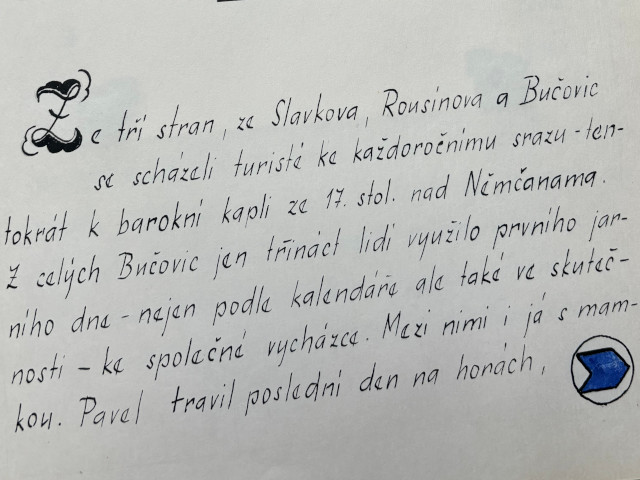 Ze tří stran, ze Slavkova, Rousínova a Bučovic
se scházeli turisté ke každoročnímu srazu - ten-
tokrát k barokní kapli ze 17. stol. nad Němčanama.
Z celých Bučovic jen třináct lidí využilo prvního jar-
ního dne - nejen podle kalendáře ale také ve skuteč-
nosti - ke společné vycházce. Mezi nimi i já s mam-
kou. Pavel travil poslední den na horách,